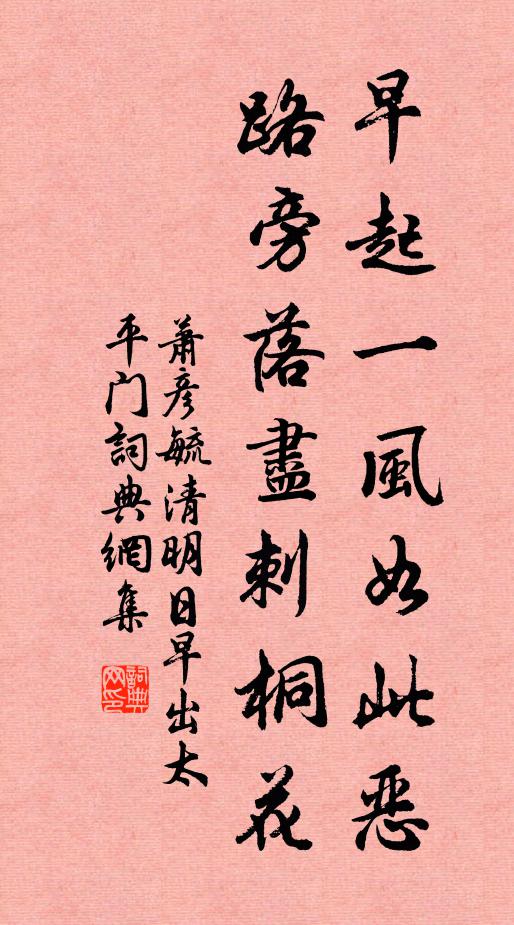 早起一風如此惡
路旁落盡刺桐花
蕭彥毓清明日早出太
平门詞典網集
詞典
网印